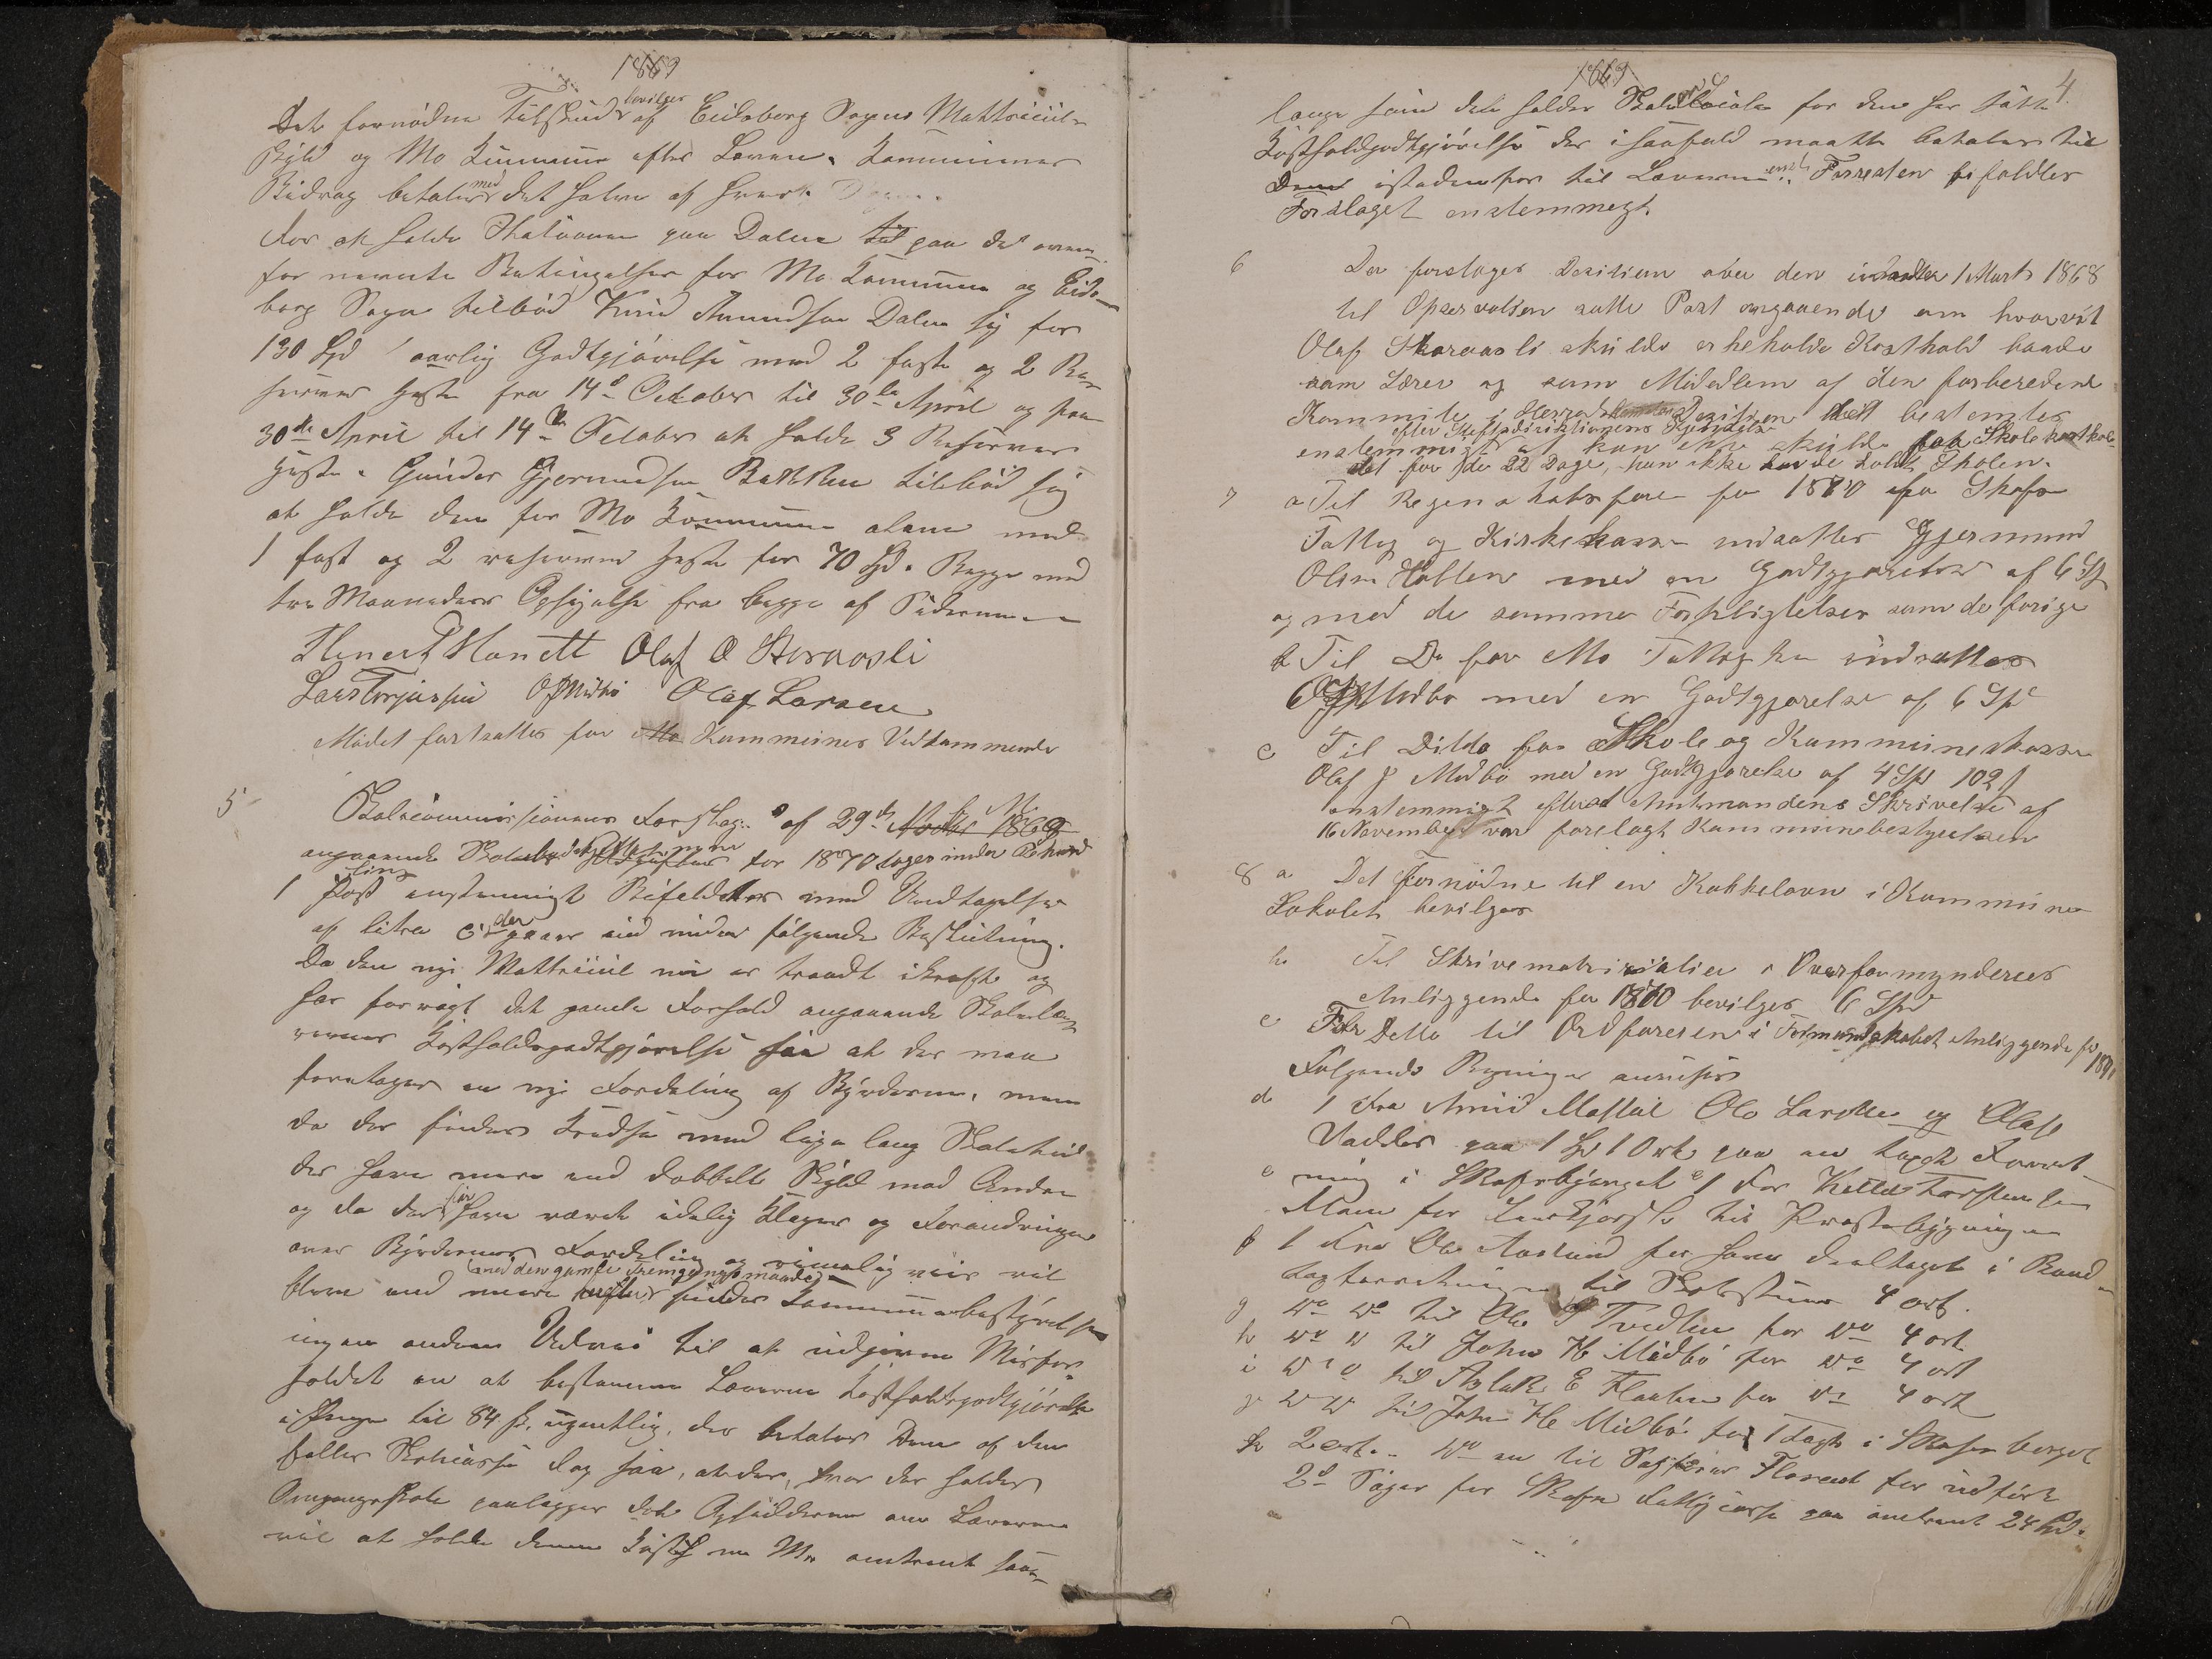 1869
Det fornødne Tilskud bevilges af Eidsborg Sogns Mattricül-
skyld og Mo Kommune efter Loven. Kommunernes
Bidrag betales med det halve af hvert
For at holde Skationen paa Dalen til paa de oven-
for nævnte Betingelser for Mo Kommune og Eids-
borg Sogn tilbød Knud Aamundsen Dalen sig for
130 Spd aarlig Godtgjørelse med 2 faste og 2 Re-
serve Heste fra 14de October til 30te April og fra
30te April til 14de October at holde 3 Reserve
Heste. Gunder Gjermundsen Bakken tilbød sig
at holde den for Mo Kommune alene med
1 fast og 2 reserve Heste for 70 Spd. Begge med
tre Maaneders Opsigelse fra begge af Siderne
Olaf O Storaasli
Lars Torjussen OJMidbö Olaf Larsen
Mødet fortsattes for Mo Kommunes Vedkommende
5 Skolecommissionens Forslag af 29de
angaaende for 1870 toges under Behand
ling
1 Post enstemmigt Bifaldes med Undtagelse
af litra c, der gaar ind under følgende Beslutning.
Da den nye Mattricül nu er traadt ikraft og
har forrykt det gamle Forhold angaaende Skolelæ-
rernes Kostholdsgodtgjørelse saa at der maa
foretages en ny Fordeling af Byrderne, men
da der findes Kredse med lige lang Skoletid
der have mere end dobbelt Skyld mod Andre
og da der før have været idelig Klager og Forandringer
over Byrdernes Fordeling og rimelig viis vil
(med den gamle Fremgangsmaade)
blive end mere finder Kommunebestyrelsen
ingen anden Udvei til at udjevne Misfor-
holdet en at bestemme Lærerne Kostholdsgodtgjørelse
i Penge til 84 sk. ugentlig, der betales Dem af den
fælles Skolecasse dog saa, at der, hvor der holdes
Omgangsskole paalægger det Opsidderne om Læreren
vil at holde denne Kost omtrent saa-
1869 4
længe som de holder Skolelocale for den her satte
Kostholdgodtgjørelse der isaafald maatte betales til
Dem istedenfor til Læreren. Forresten bifaldtes
Forslaget enstemmegt
6 Der foretages Desisien over den 1 Marts 1868
til Opservation satte Post angaaende om hvorvit
Olaf Storaasli skulde erheholde Kosthold baade
som Lærer og som Mededlem af den forberedende
Kommite i Herredet Desisien bestemtes
efter Stiftsdirektionens Kjendelse
enstemmigt at han ikke skulde faa Skolekosthol-
det for de 22 Dage, han ikke havde holdt Skolen.
7 a Til Regenskabsfører for 1870 for Skafse
Fattig og Kirkekasse indsattes Gjermund
Olsen Holten med en Godtgjørelse af 6 Sp
og med de samme Forpligtelser som de forige
b Til Do for Mo Fattigk indsattes
OJMidbø med en Godtgjørelse af 6 Spd
c Til Ditto for Skole og Kommunekasse
Olaf J Midbø med en Godtgjørelse af 4 Spd 102 s
enstemmigt efterat Amtmandens Skrivelse af
16 November var forelagt Kommunebestyrelsen
8 a Det Fornødne til en Kakkelovn i Kommune
Lokalet bevilges
b. Til Skrivematrialier i Overformynderies
Anliggende for 1870 bevilges 6 Spd
c Ditto til Ordføreren i Formandskabet Anliggende for 1870
Følgende Regninger anvises
d 1 Fra Amund Ole Larsen og Olaf
Vadder paa 1 Spd 1 Ort paa en Taxt Forret
e ning i Skafsebjerget 1 For Kittel Torstensen
Moen for Tærkjørsle til Prostebygningen
f 1 Fra Ole Aaslund for have deeltaget i Brand-
taxtforretningen til Skolestuen 4 ort.
g Do Do til Ole Tvedten for Do 4 ort
h Do Do til John H Midbö for Do 4 ort
i Do Do til Aslak E Flaaten for Do 4 ort
j Do Do til John H Midbö for 1 Taxt i Skafse berget
k 2 ort. Do en til for udført
2de Sager for Skafse Fattigcasse paa omtrent 24 Spd.